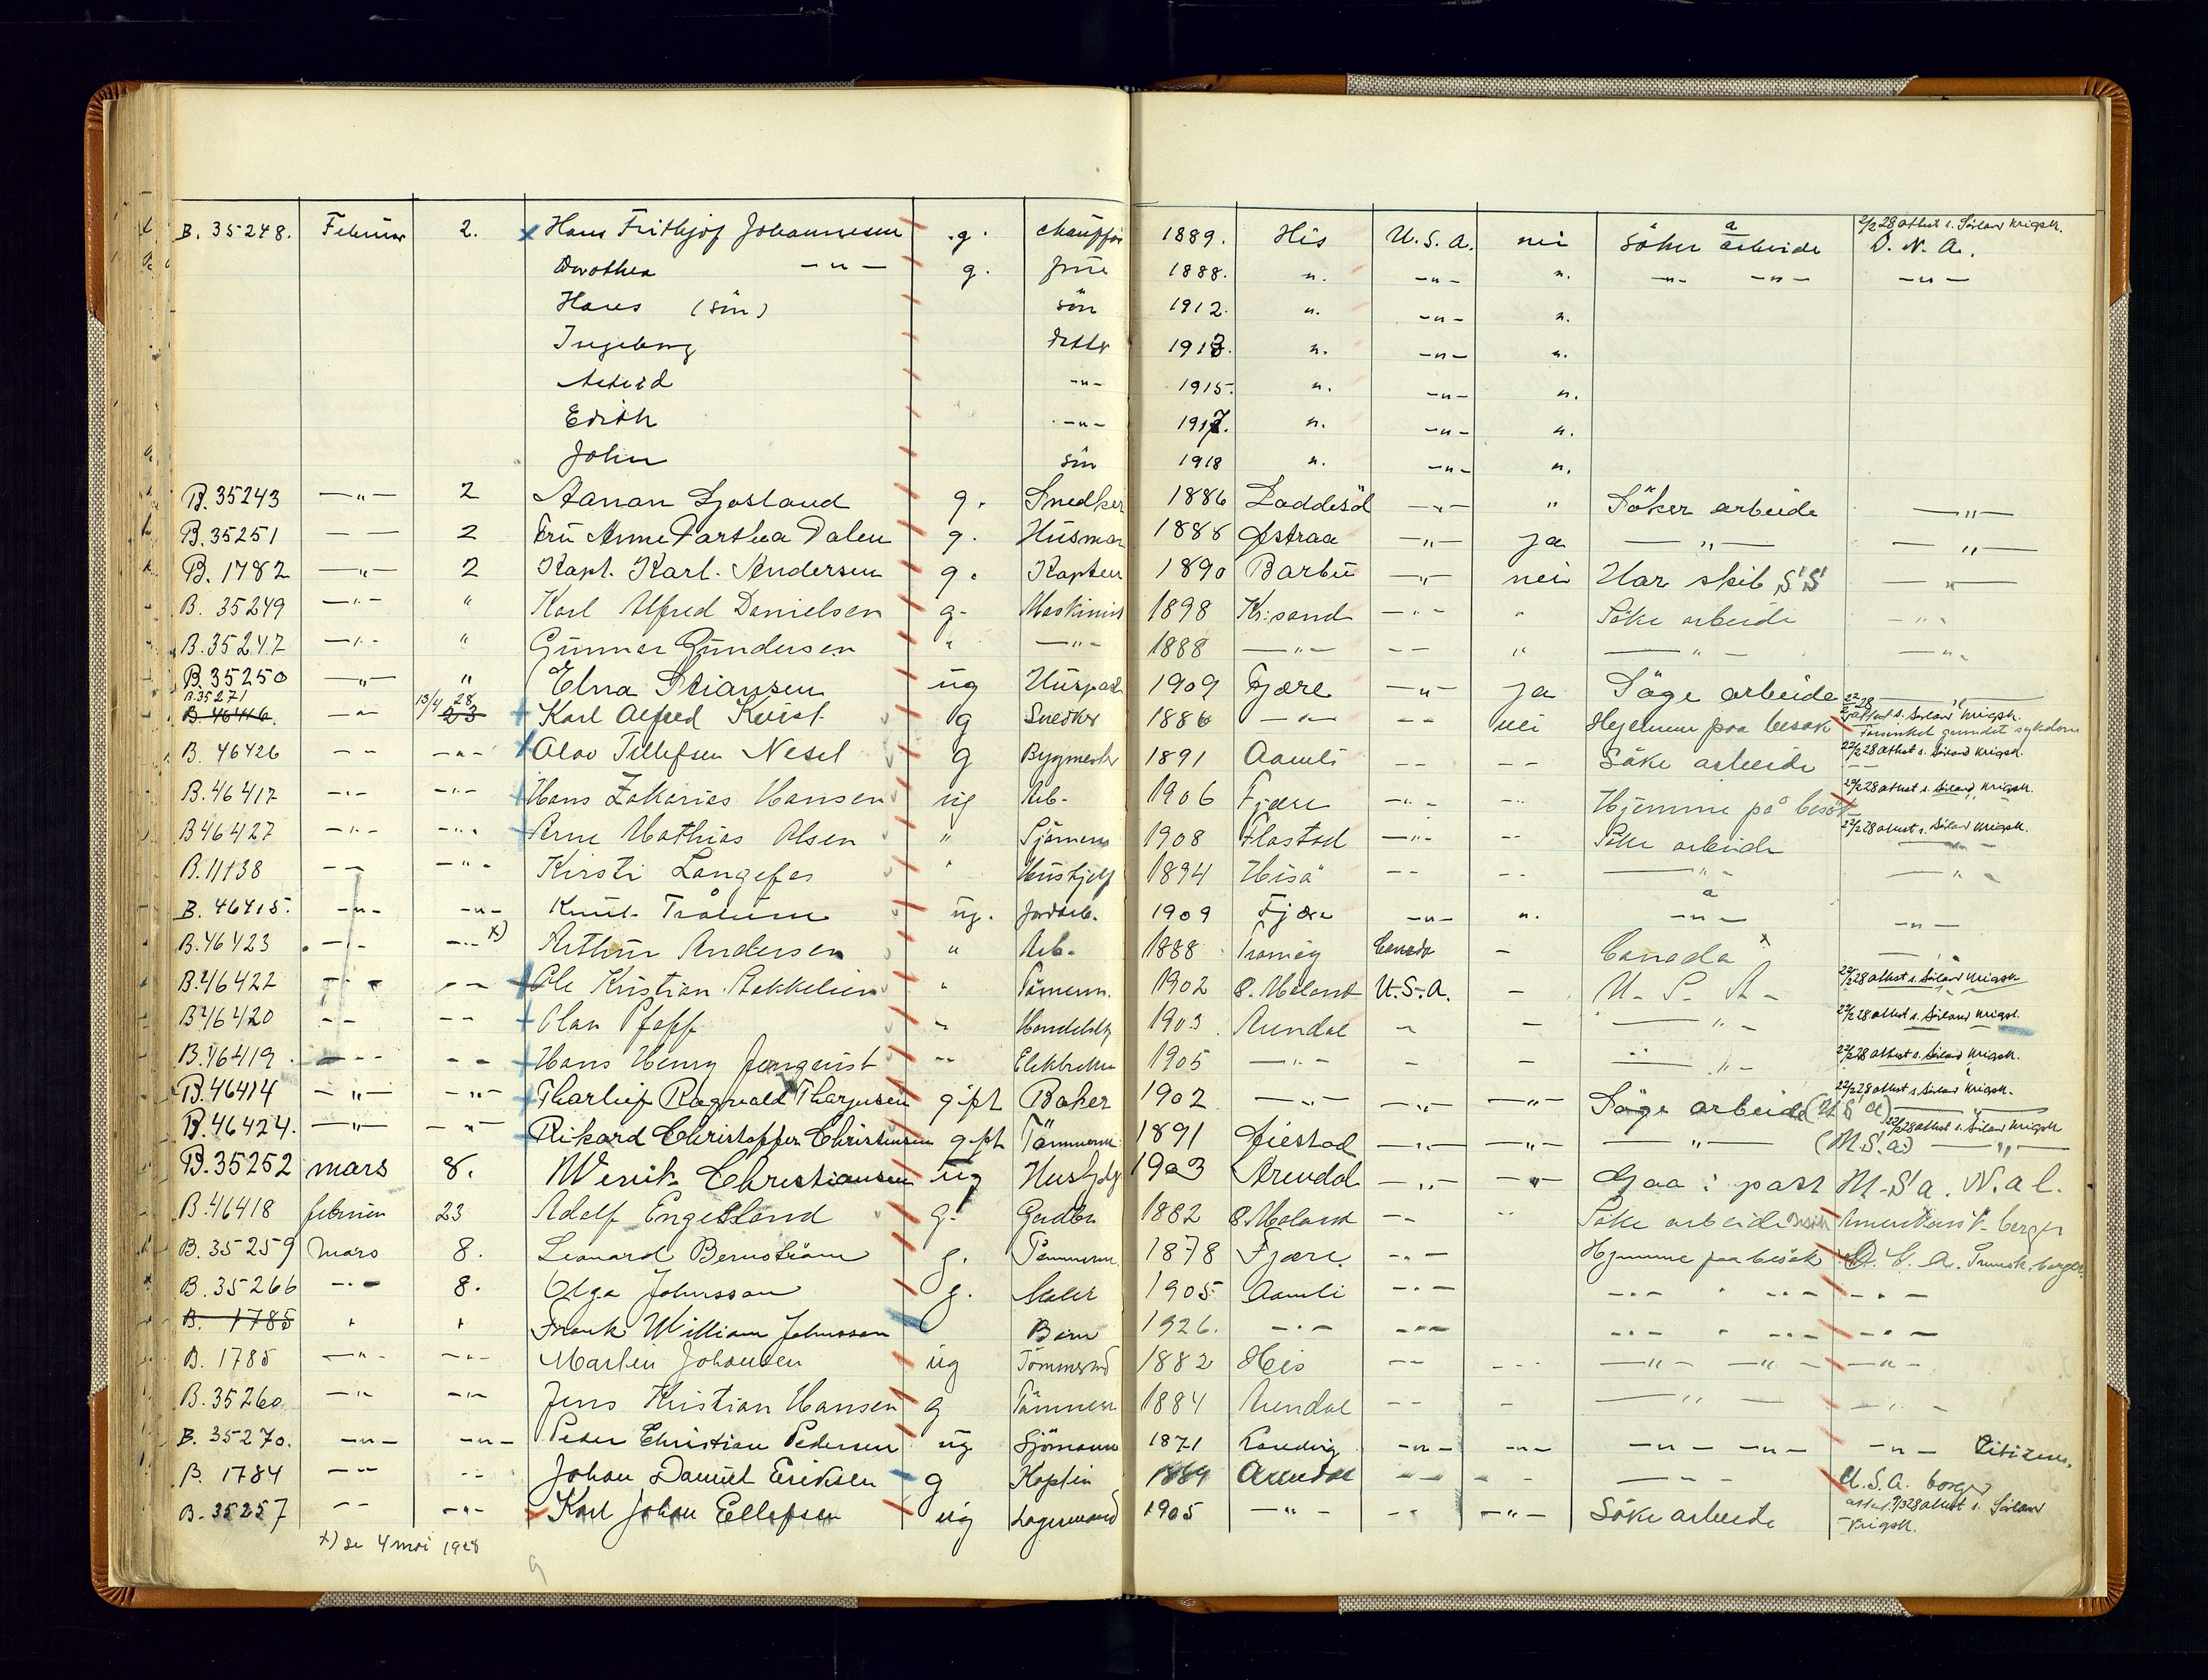 B. 35248. Februar 2. x Hans Frithjof Johannesen g. chauffør 1889. His U.S.A. nei söker arbeide 2/2 28 attest s. Sörland Krigsk. D. N. A.
Dorothea —„— g. frue 1888. „. —„— „. —„— —„— —„—
Hans (sön) sön 1912. „. —„— „.
Ingeborg dotter 1913. „. —„— „.
Astrid —„— 1915. „. —„— „.
Edith —„— 1917. „. —„— „.
John sön 1918 „. —„— „.
B. 35243 —„— 2 Aanan Ljosland g. Snedker 1886 Laddesöl —„— „ Söker arbeide —„—
B. 35251 — — 2 Fru Anna Parthea Dalen g. Husmor 1888 Østraa —„— ja —„— —„—
B. 1782 —„— 2 Kapt. Karl. Andersen g. Kaptein 1890 Barbu —„— nei Har skib S'S' —„—
B. 35249 —„— „ Karl Alfred Danielsen g. Maskinist 1898 Kr:sand —„— „ Söke arbeide —„—
B. 35247 —„— „ Gunnar Gundersen „ —„— 1888 —„— — — „ —„— —„—
B. 35250 —„— „ Elna Stiansen ug Huspost 1909 Fjære —„— ja Söge arbeide —„—
B. 35271 B. 46416. —„— 13/4 28 23 Karl Alfred Kvist g Snedker 1886 —„— — — nei Hjemme paa besøk attest s. Sörland Krigsk. Forsinket grundet sykdom
B. 46426 — — —„— Olav Tellefsen Nesel g Bygmester 1891 Aamli — — — — Söke arbeide 22/2 28 attest s. Sörland Krigsk.
B. 46417 —„— —„— Hans Zakarias Hansen ug Arb. 1906 Fjære —„— —„— Hjemme på besök 22/2 28 attest s. Sörland Krigsk.
B 46427 —„— —„— Arne Mathias Olsen „ Sjömann 1908 Flostad —„— — — Söke arbeide 22/2 28 attest s. Sörland Krigsk.
B. 11138 — — —„— Kirsti Langefos „ Hushjelp 1894 Hisö — — — — —„— —„—
B. 46415. —„— —„— Knut Tråum ug. Jordarb. 1909 Fjære —„— „. —„— —„—
B. 46423 —„— —„— x) Arthur Andersen „ Arb. 1888 Tromöy Canada — Canada x —„—
B. 46422 —„— — — Ole Kristian Rekkelien „ Tömerm. 1902 Ö. Moland U.S.A. — U. S. A. 22/2 28 attest s. Sörland Krigsk
B 46420 — — — — Olav Pfaff „ 1903 Arendal — — —„— 22/2 28 attest s. Sörland Krigsk.
B. 46419. — — — — Hans Henry Jungquist „ 1905 —„— — — —„— 22/2 28 attest s. Sörland Krigsk.
B. 46414 —„— —„— Tharleif Ragnvald Tharjusen gift Baker 1902 —„— —„— —„— Söge arbeide (U S A) 22/2 28 attest s. Sörland Krigsk. —„—
B. 46424. —„— —„— Rikard Christoffer Christensen gift Tömmerm. 1891 Öiestad —„— —„— —„— (U.S.A.) 22/2 28 attest s. Sörland Krigsk —„—
B. 35252 mars 8. Christiansen ug Hushjelp 1903 Arendal —„— —„— Gaa i post U.S.A. N.A.L.
B. 46418 februar 23 Adolf Engesland g. 1882 Ö. Moland — — „ Söke arbeide Besök Amerikansk borger
B. 35259 Mars 8. Leonard Bernstrøm g. Tömmerm. 1878 Fjære. —„— Hjemme paa besök U. S. A. borger
B. 35266 —„— 8. Olga Johnsson g. 1905 Aamli —„— —„— „ —„— —„—
B. 1785 „ „ Frank William Johnsson Barn 1926. —„— —„— —„— „ —„— —„—
B. 1785 —„— —„— Martin Johansen ug Tömmerm 1882 His — — — — —„— —„— —„—
B. 35260 —„— —„— Jens Kristian Hansen g Tömmerm 1884 Arendal — — — —„— —„—
B. 35270. —„— —„— Peder Christian Pedersen ug Sjömann 1871 —„— —„— —„— —„— —„— Citizen.
B. 1784 —„— — — Johan Daniel Eriksen g Kaptein 1889 Arendal — — — — —„— U.S.A. borger
B. 35257 — — —„— Karl Johan Ellefsen ug Lagermand 1905 —„— — — —„— Söke arbeide 9/3 28 attest s. Sörland Krigsk.
x) se 4 mai 1928
9